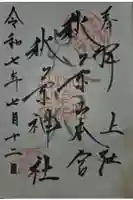 奉拝 上社
秋葉山本宮
秋葉神社
令和七年七月十二日